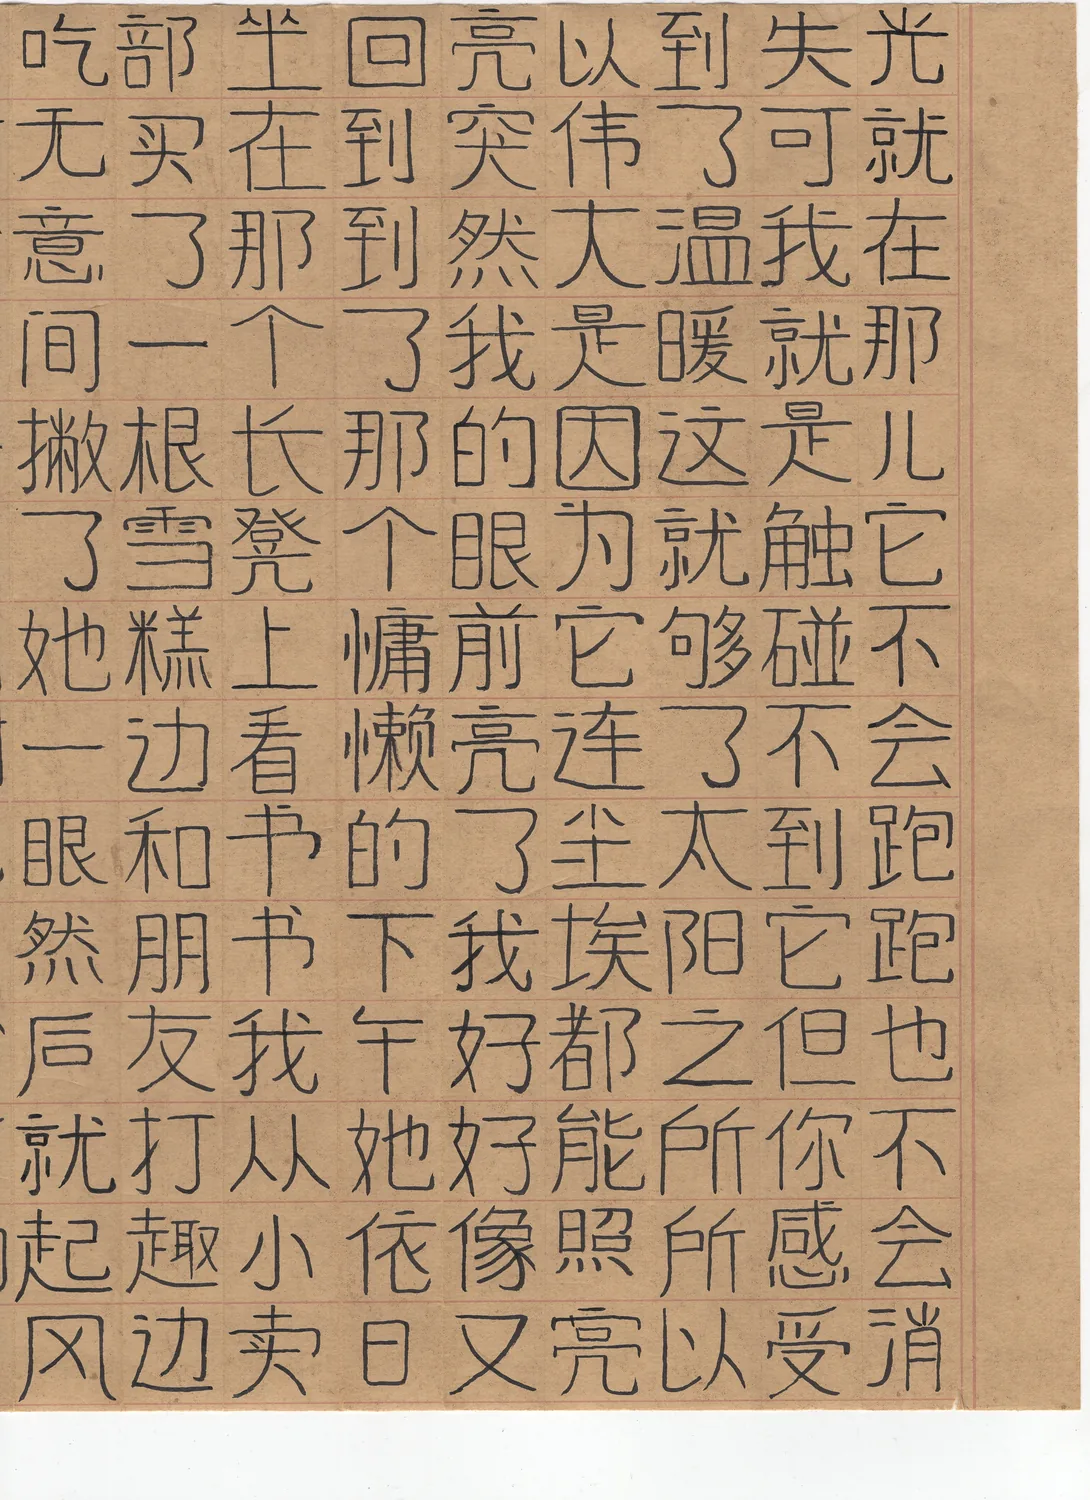 光就在那儿它不会跑跑也不会消
失可我就是触碰不到它但你感受
到了温暖这就够了太阳之所所以
以伟大是因为它连尘埃都能照亮
亮突然我的眼前亮了我好好像又
回到到了那个慵懒的下午她依日
坐在那个长凳上看书书我从小卖
部买了一根雪糕边和朋友打趣边
吃无意间撇了她一眼然后就起风